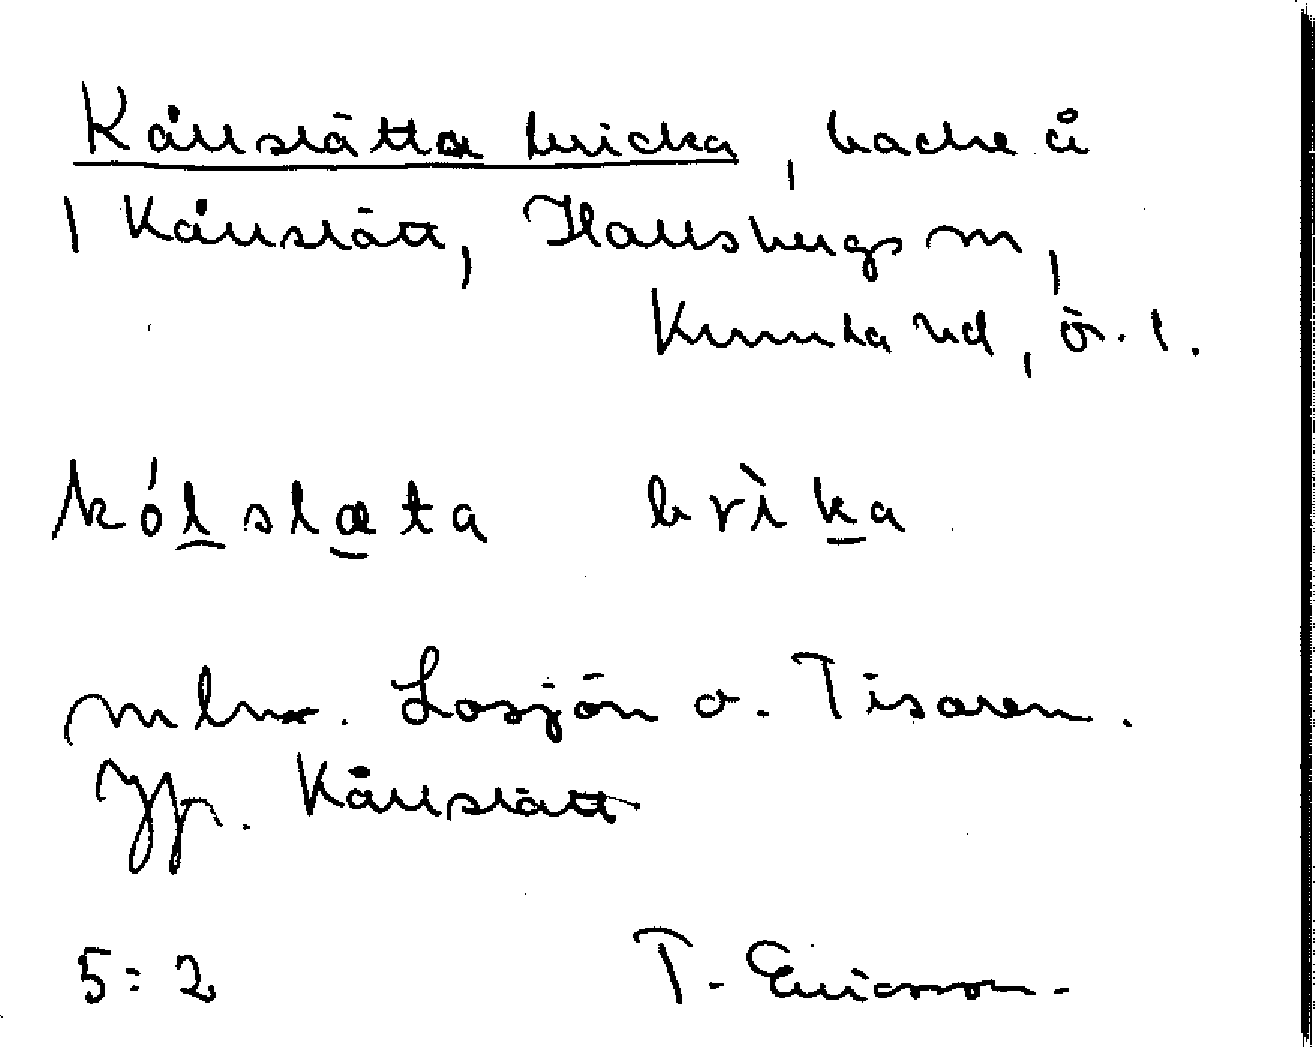 Kårstätta bricka, backe å
Kårstätt, Hallsbergs sn,
Kumla hd, ö. l.
kólslæta brìka
mln. Losjön o. Tisaren.
Jfr. Kårstätt
5:2 T. Ericsson.